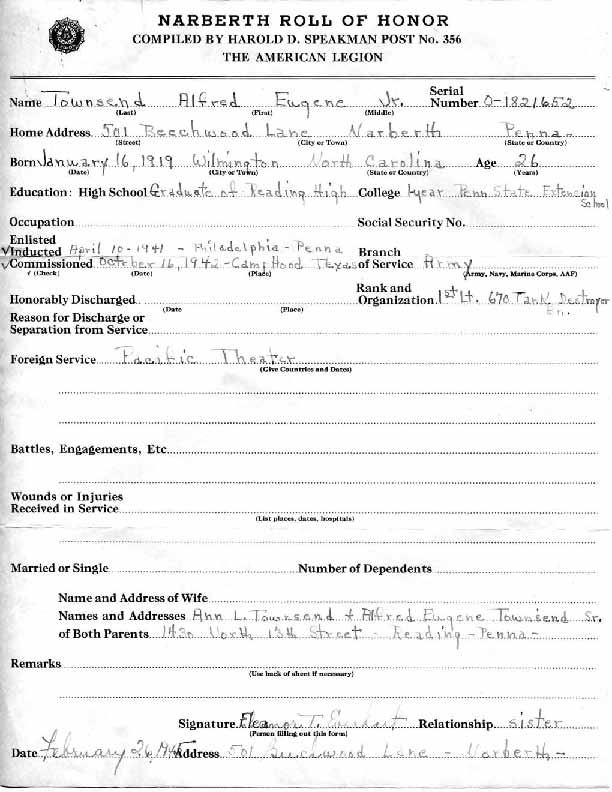 NARBERTH ROLL OF HONOR
COMPILED BY HAROLD D. SPEAKMAN POST No. 356
THE AMERICAN LEGION
Name Townsend Alfred Eugene Jr. Serial Number O-1821652
(Last) (First) (Middle)
Home Address 501 Beechwood Lane Narberth Penna-
(Street) (City or Town) (State or Country)
Born January 16, 1919 Wilmington North Carolina Age 26
(Date) (City or Town) (State or Country) (Years)
Education: High School Graduate of Reading High College 1 year Penn State Extension School
Occupation Social Security No.
Enlisted
√ Inducted April 10-1941 - Philadelphia - Penna Branch
√ Commissioned October 16, 1942 - Camp Hood Texas of Service Army
√ (Check) (Date) (Place) (Army, Navy, Marine Corps, AAF)
Honorably Discharged Rank and Organization 1st Lt. 670 Tank Destroyer Bn.
(Date (Place)
Reason for Discharge or
Separation from Service
Foreign Service Pacific Theater
(Give Countries and Dates)
Battles, Engagements, Etc.
Wounds or Injuries
Received in Service
(List places, dates, hospitals)
Married or Single Number of Dependents
Name and Address of Wife
Names and Addresses Ann L. Townsend + Alfred Eugene Townsend Sr.
of Both Parents 1430 North 13th Street - Reading - Penna -
Remarks
(Use back of sheet if necessary)
Signature Eleanor T. Relationship sister
(Person filling out this form)
Date February 26, 1945 Address 501 Beechwood Lane - Narberth -